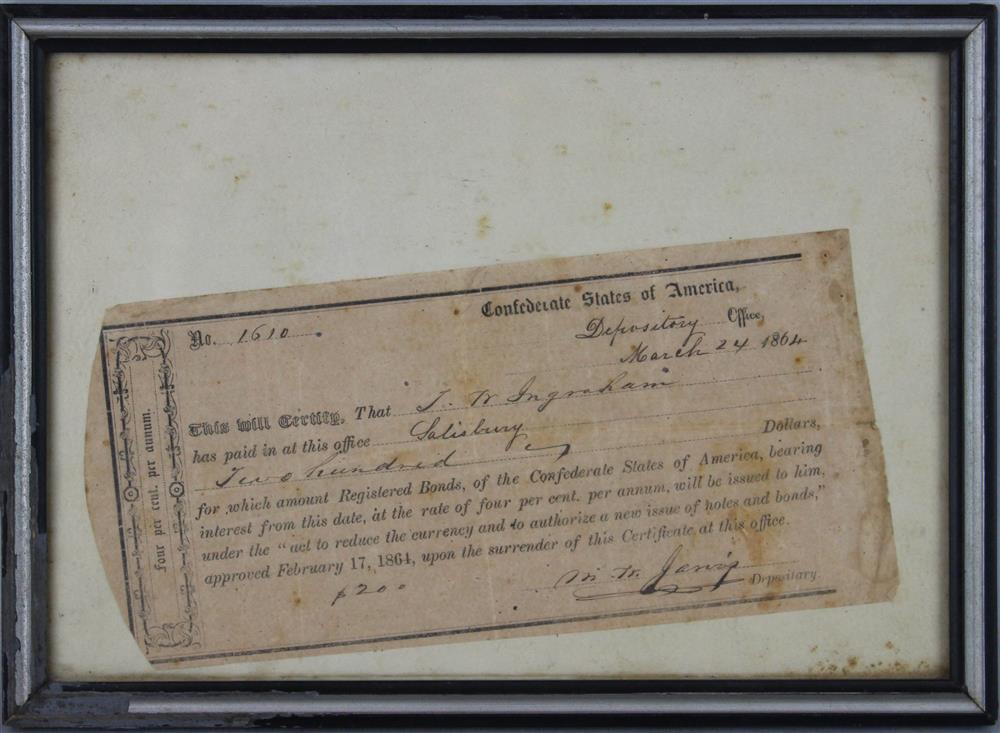 Confederate States of America,
No. 1610
Depository Office,
March 24 1864
Four per cent. per annum.
This will Certify, That T. W Ingraham
has paid in at this office Salisbury
Two hundred Dollars,
for which amount Registered Bonds, of the Confederate States of America, bearing
interest from this date, at the rate of four per cent. per annum, will be issued to him,
under the "act to reduce the currency and to authorize a new issue of notes and bonds,"
approved February 17, 1864, upon the surrender of this Certificate at this office.
$200
M. W. Jarvis Depositary.